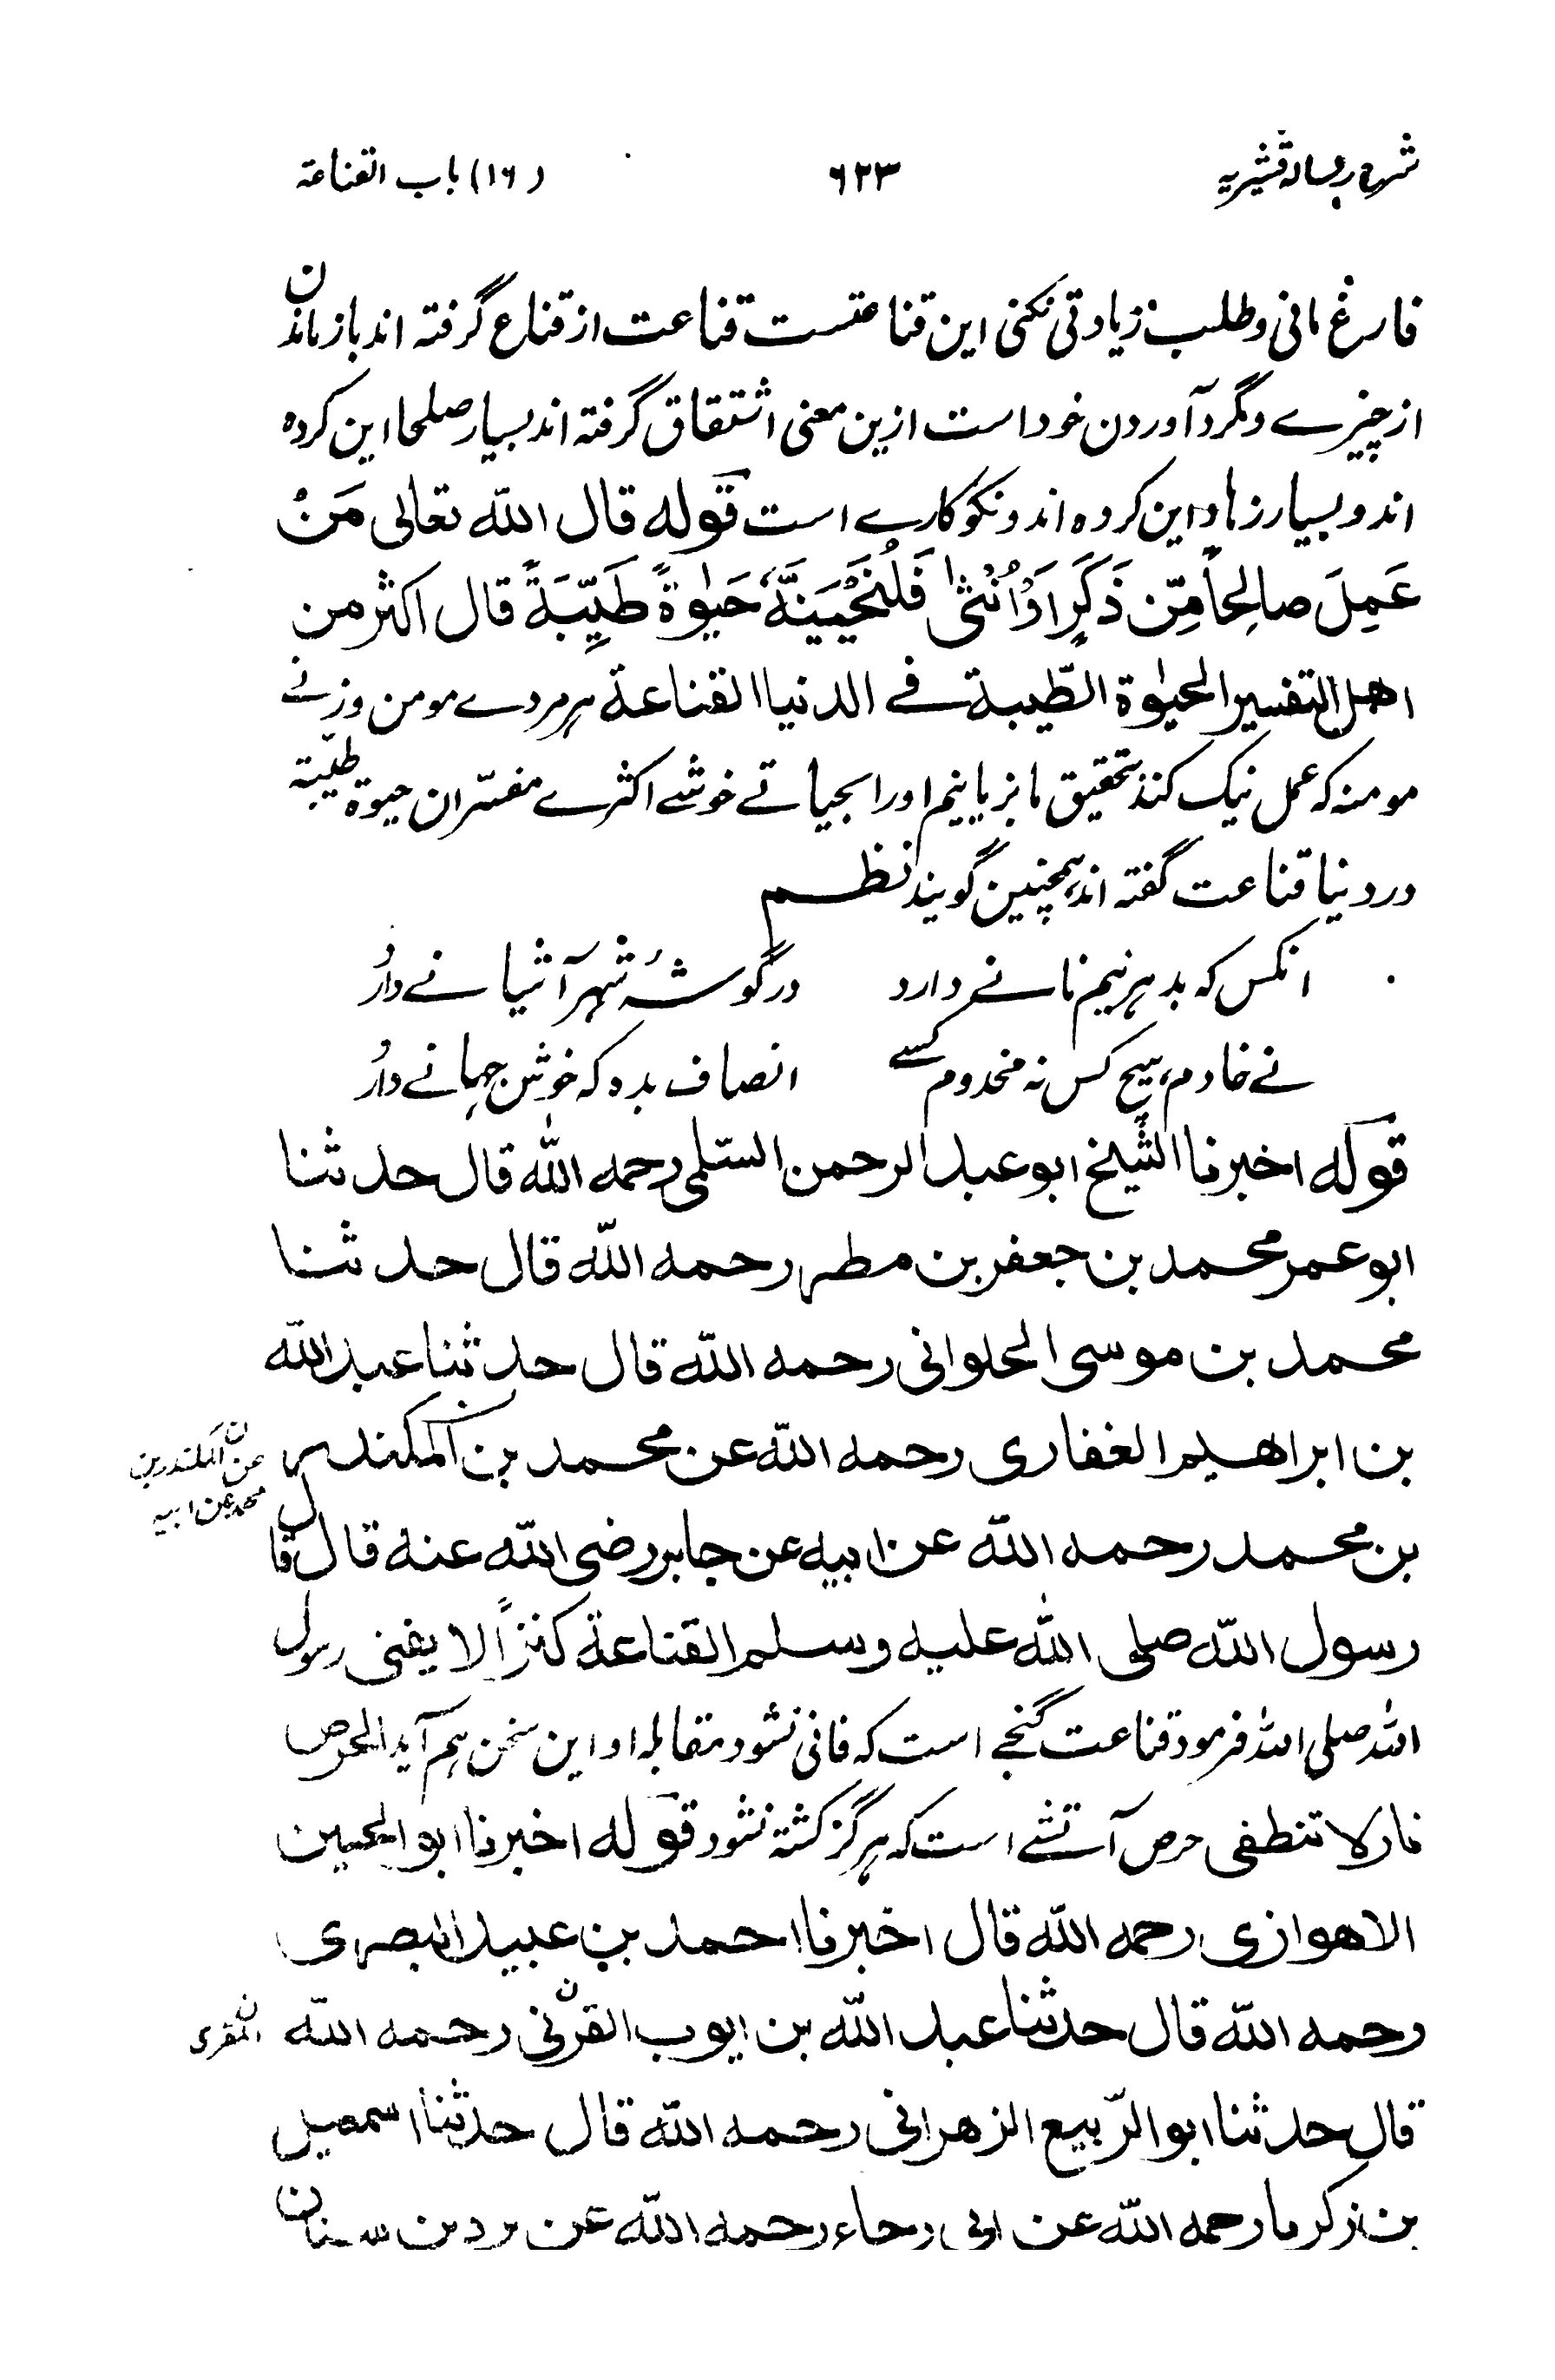 شرح رسالہ قشیریہ ۶۲۳ (۱۶) باب القناعة
فارغ مانی و طلب زیادتی نکنی این قناعتست قناعت از قناع گرفته اند باز ماندن
از چیزے و گرد آوردن خود است ازین معنی اشتقاق گرفته اند بسیار صلحا این کرده
اند و بسیار زهاد این کرده اند و نکو کارے است قوله قال الله تعالى مَنْ
عَمِلَ صالِحاً مِّن ذَكَرٍ اَوْ اُنْثٰى فَلَنُحْيِيَنَّهٗ حَيٰوةً طَيِّبَةً قال اكثر من
اهل التفسير الحيٰوة الطّيبة فے الدنيا القناعة ہر مردے مومن و زنے
مومنہ کہ عمل نیک کند بتحقیق ما بزیانیم او را بحیاتے خوشے اکثرے مفسّران حیوة طیّبة
در دنیا قناعت گفتہ اند ہمچنین گویند نظم
انکس کہ بدہر نیم نانے دارد در گوشۂ شہر آشیانے دارد
نے خادم ہیچ کس نہ مخدوم کسے انصاف بدہ کہ خوش جہانے دارد
قوله اخبرنا الشيخ ابو عبد الرحمن السّلمی رحمه الله قال حدثنا
ابو عمر محمد بن جعفر بن مطهر رحمه الله قال حدثنا
محمد بن موسى الحلوانی رحمه الله قال حدثنا عبد الله
بن ابراهیم الغفاری رحمه الله عن محمد بن المکندر
ن عن المکندر بن
محمد عن ابیه
بن محمد رحمه الله عن ابیه عن جابر رضی الله عنه قال قال
رسول الله صلى الله عليه وسلم القناعة كنزاً لا يفنى رسول
الله صلی الله فرمود قناعت گنجے است کہ فانی نشود مقابلہ او این سخن ہم آید الحرص
نار لا تنطفی حرص آتشے است کہ ہرگز کشتہ نشود قوله اخبرنا ابو الحسین
الاهوازی رحمه الله قال اخبرنا احمد بن عبید البصری
رحمه الله قال حدثنا عبد الله بن ایوب القرنی رحمه الله
ن المقری
قال حدثنا ابو الرّبیع الزهرانی رحمه الله قال حدثنا اسمعیل
بن زکریا رحمه الله عن ابی رجاء رحمه الله عن برد بن سنان